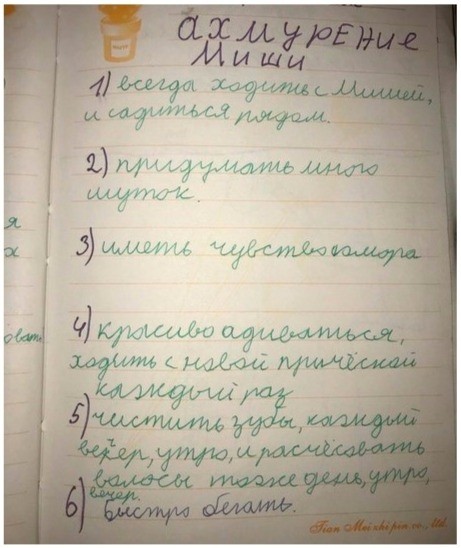 ахмурение
Миши
1) всегда ходить с Мишей,
и садиться рядом.
2) придумать много
шуток.
3) иметь чувство юмора
4) красиво адиваться,
ходить с новой причёской
каждый раз
5) чистить зубы, каждый
вечер, утро, и расчёсовать
волосы тоже день, утро,
вечер.
6) быстро бегать.
я
х
овать
Tian Mei zhi pin co., Ltd.